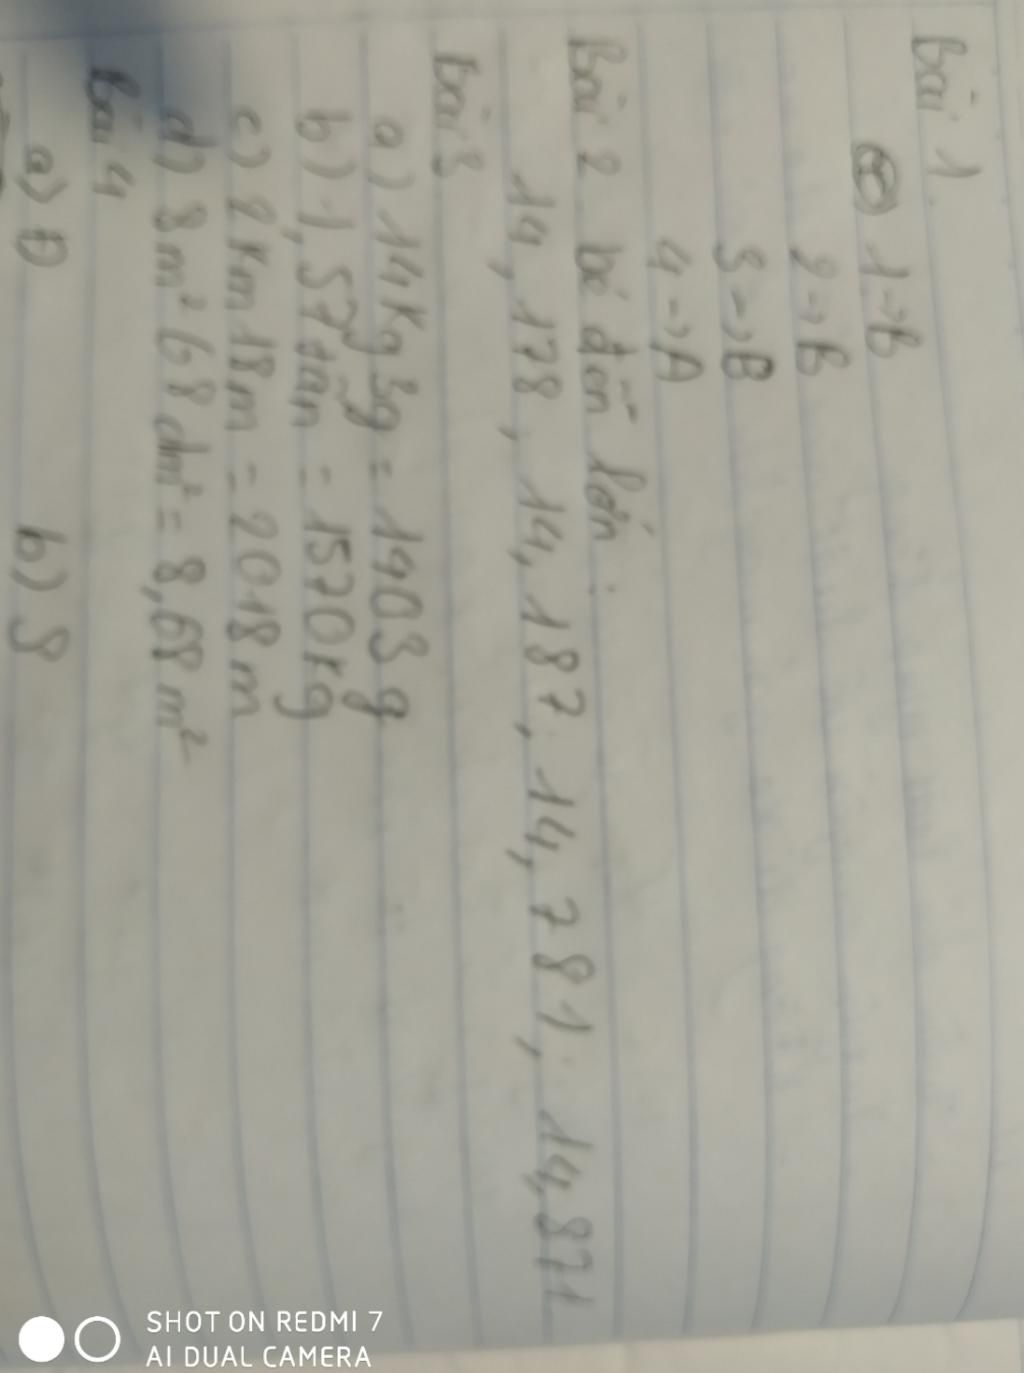 Bài 1.
1 → B
2 → B
3 → B
4 → A
Bài 2 bé đến lớn :
14,178, 14,187, 14,781, 14,871
Bài 3
a) 14kg 3g = 1403 g
b) 1,57 tấn = 1570 kg
c) 2km18m = 2018 m
d) 8m² 68 dm² = 8,68 m²
Bài 4
a) Đ b) S
SHOT ON REDMI 7
AI DUAL CAMERA